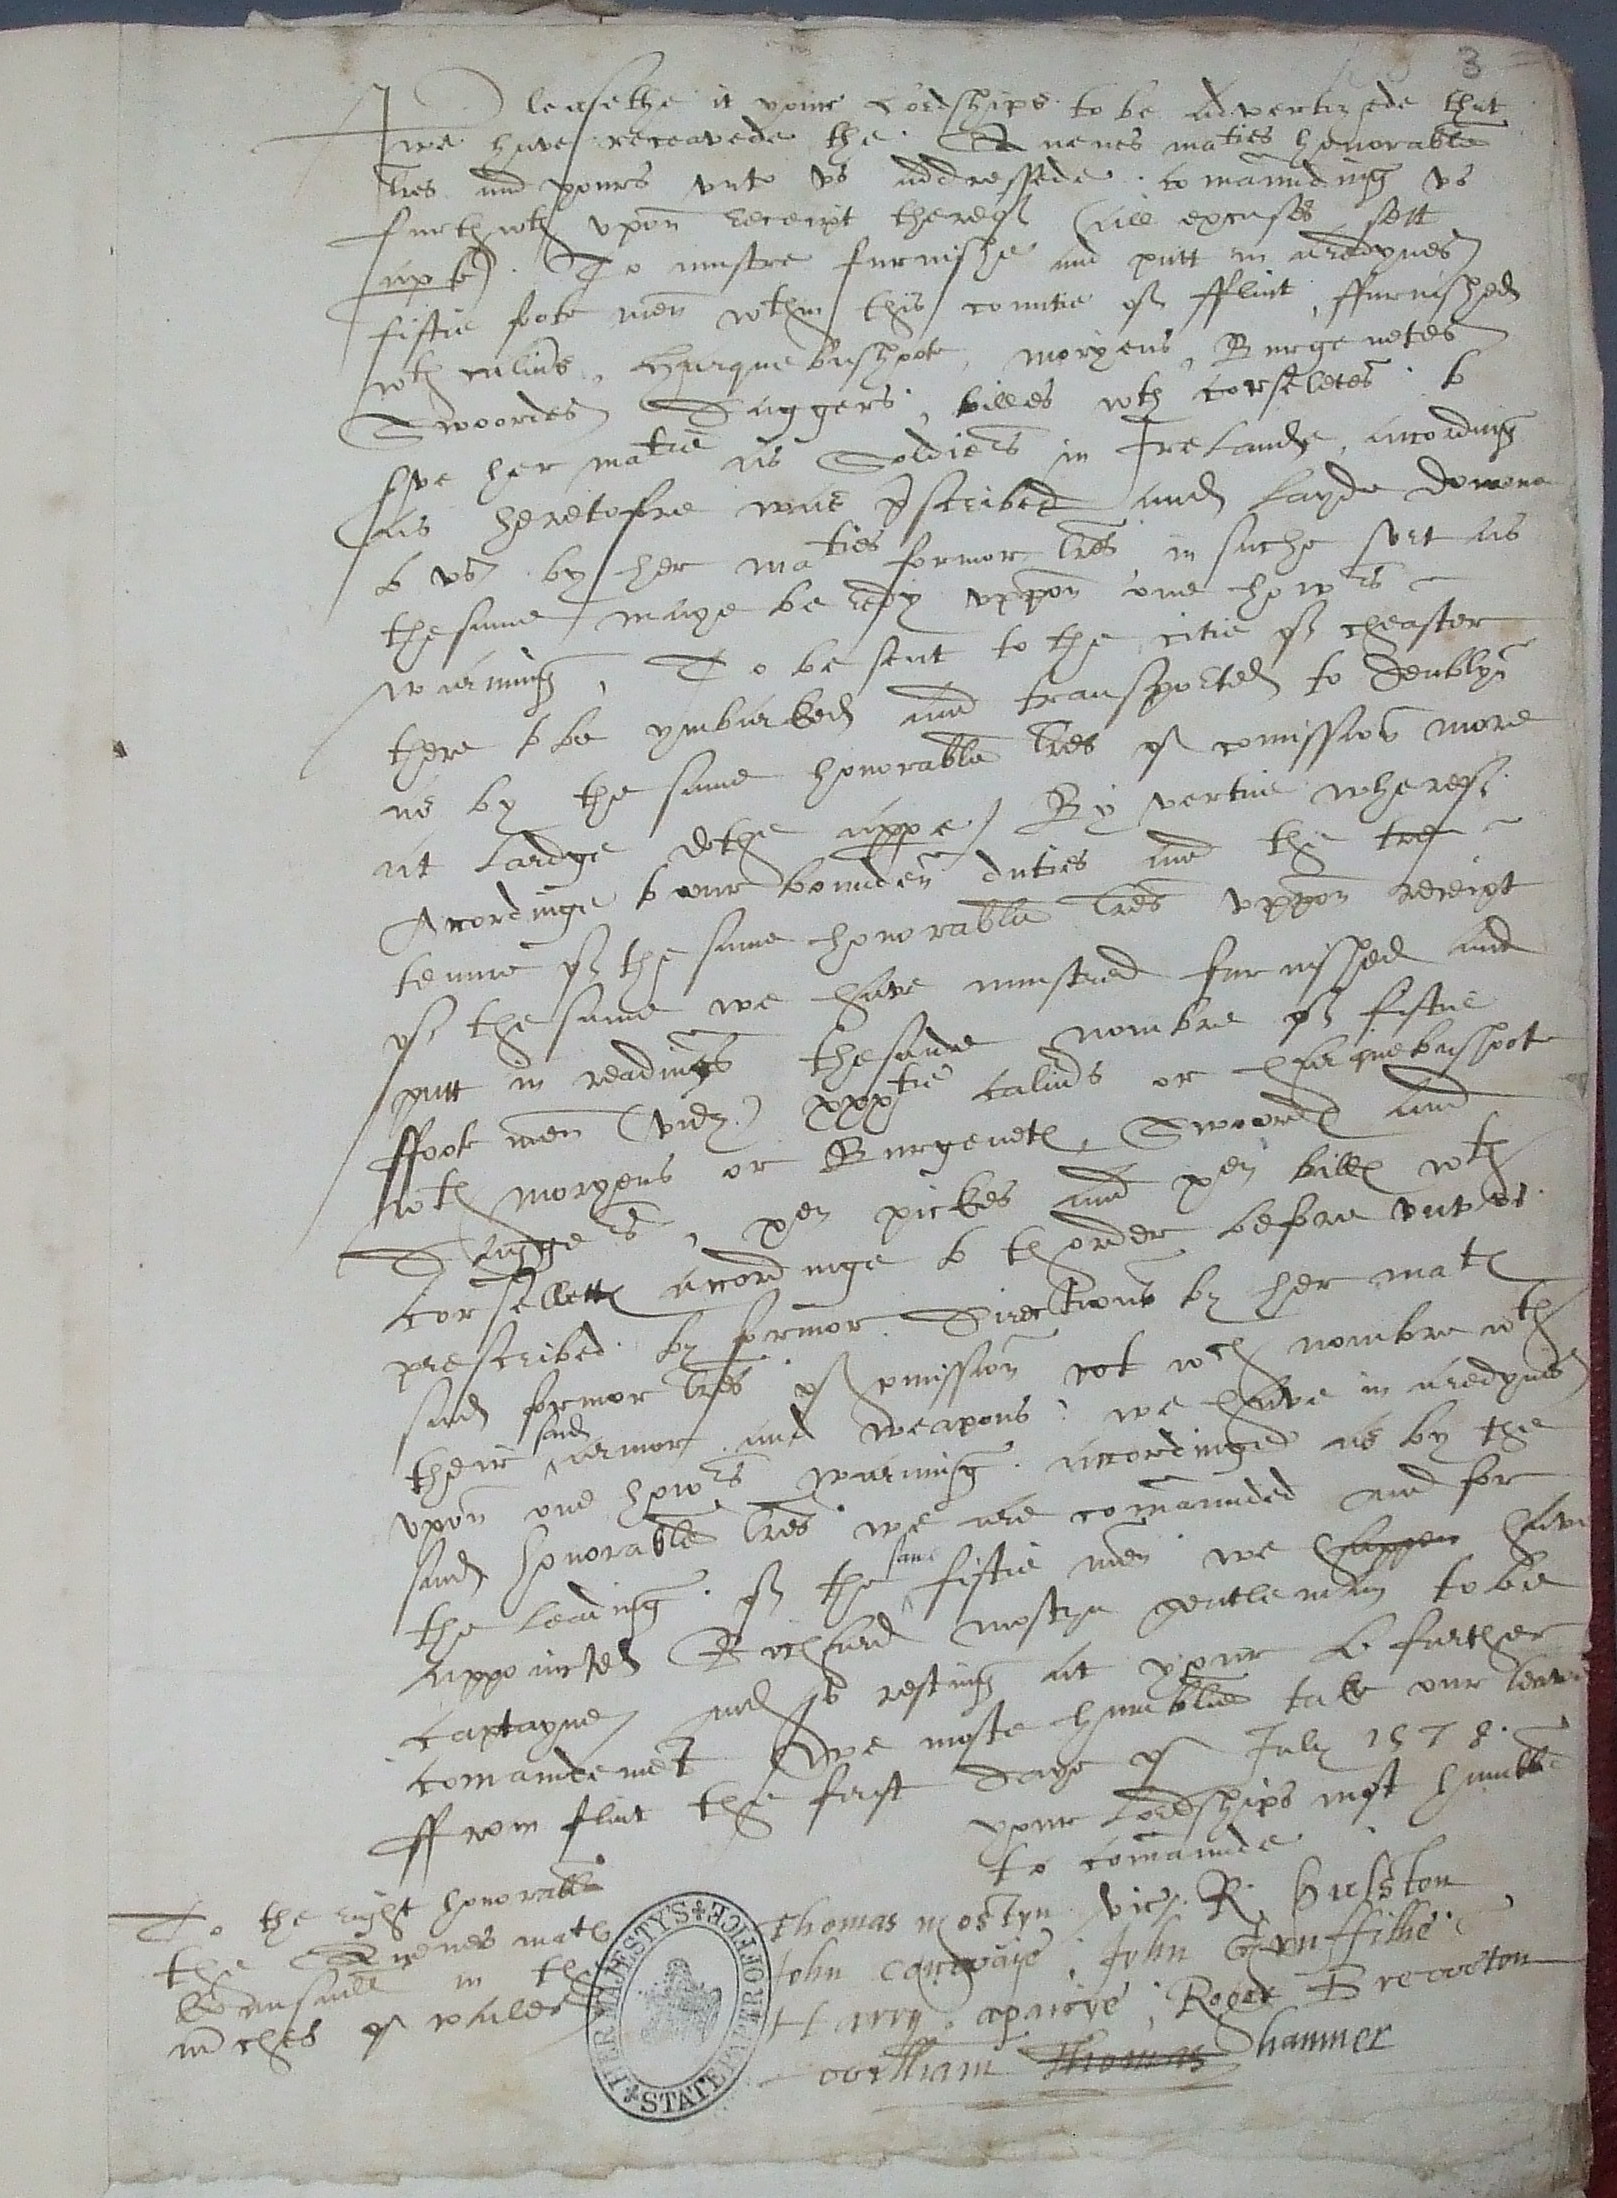 3
Pleasethe it youre Lordships to be advertizede that
we have receavede the Quenes maties honorable
lres and yours unto us addressede comaunding us
furthwth upon receipt thereof (all excuses sett
apte). To mustre furnishe and putt in aredynes
fiftie foote men wthin this countie of fflint, ffurnished
wth calivs, Harquebushott, moryens, Burgenetes
Swoordes Daggers, billes wth corseletes to
serve her matie as Soldiers in Irelande, according
as heretofore was pscribed and layde downe
to us by her maties formor lres, in suche sort as
the same maye be redy uppon one howrs
warning, To be sent to the citie of cheaster
there to be ymbarked and transported to deublyn
as by the same honorable lres of comission more
at lardge dothe appe) By vertue whereof
Acordinge to our bounden duties and the tre
tenure of the same honorable lres uppon receipt
of the same we have mustred furnished and
putt in readines the same nombre of fiftie
ffoote men (vidz.) xxxtie calivs or harquebushott
wth moryens or Burgenets, Swoords and
Daggers, xen pickes and xen bills wth
Corselletts acordinge to thorder before unto us
prescribed by formor directions by her mats
said formor lres of comission wch nombre wth
their said armor and weapons we have in aredynes
upon one howrs warning accordinge as by the
said honorable lres we are comaunded and for
the leading of the same fiftie men we happen have
appoincted Richard mostyn gentleman to be
Captayne, and so resting at your L. further
comaundemet we moste humblie take our leave
ffrom flint the first daye of July 1578.
your Lordships most humble
to comaunde
Thomas mostyn vic. R. hulston
John conwaye, John Gruffithe
Harry aparrye, Roger Brereton
william Thomas hanmer
To the right honorable
the Quenes mats
Counsaill in the
mches of wales
HER MAJESTY'S STATE PAPER OFFICE